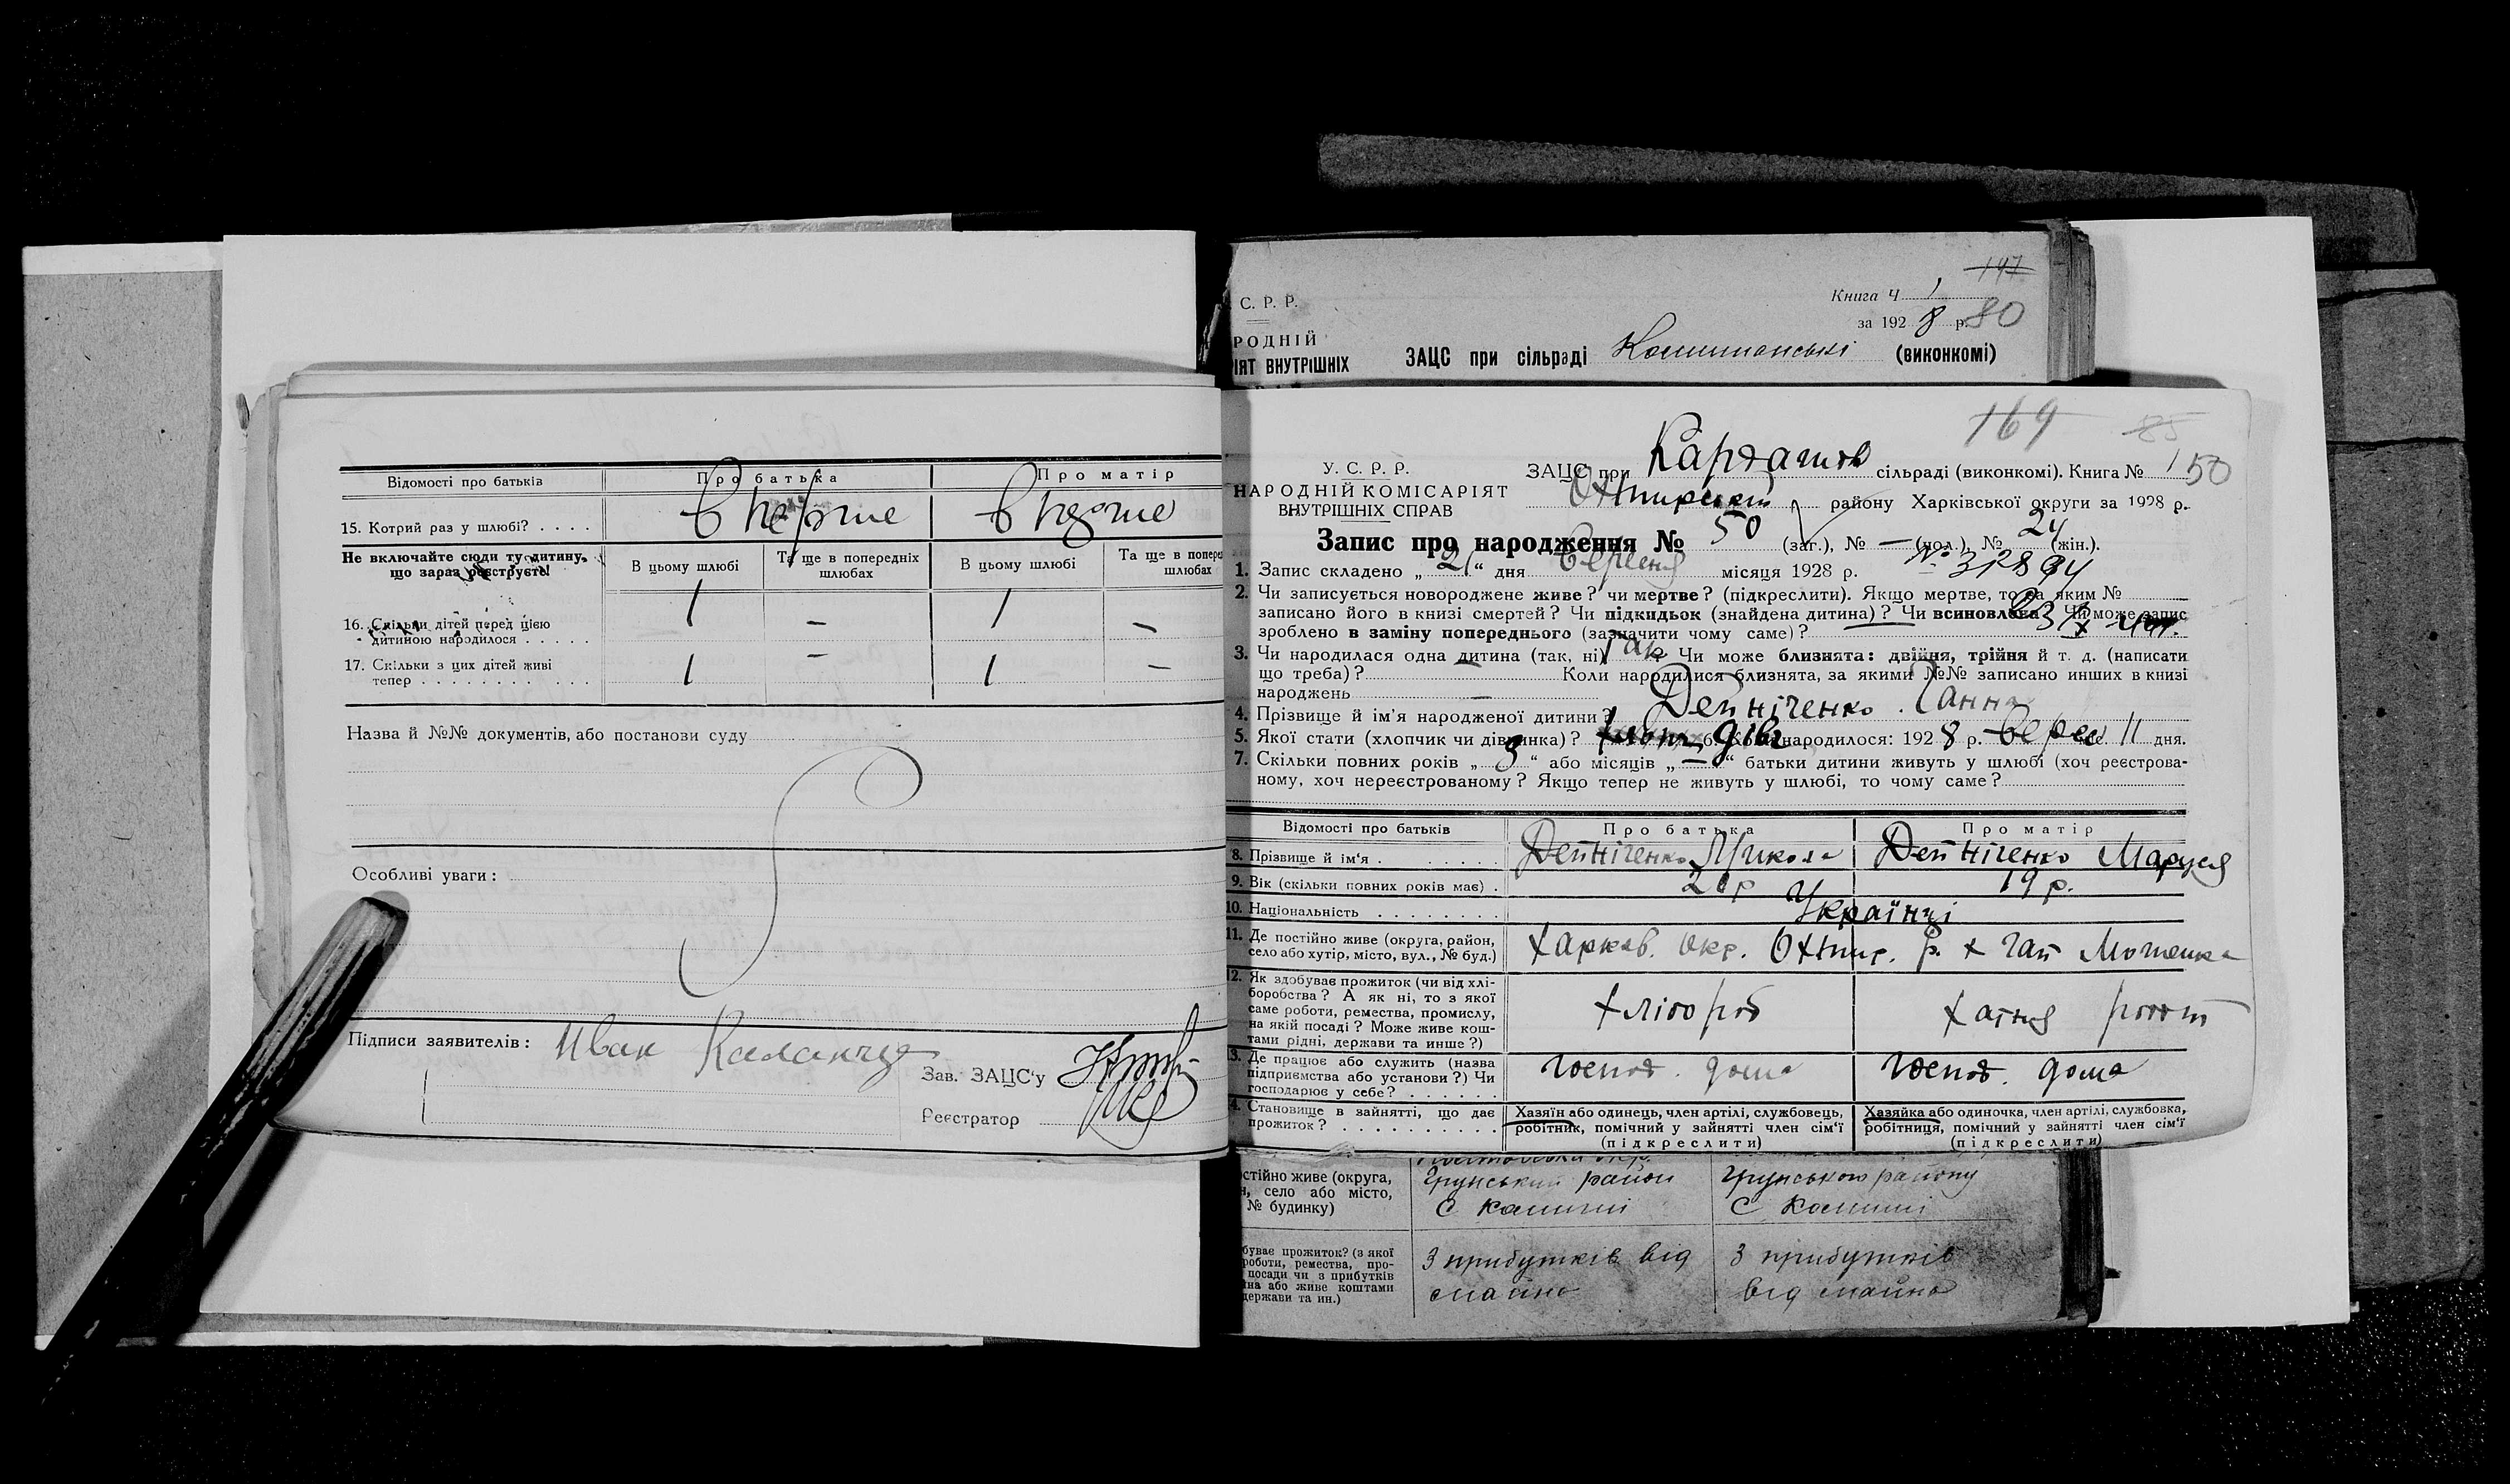 Відомості про батьків
Про батька
Про матір
15. Котрий раз у шлюбі? . . . .
Вперше
Вперше
Не включайте сюди ту дитину,
що зараз реєструєте!
В цьому шлюбі
Та ще в попередніх
шлюбах
В цьому шлюбі
Та ще в попере
шлюбах
16. Скільки дітей перед цією
дитиною народилося . . . . .
1
—
1
—
17. Скільки з цих дітей живі
тепер . . . . . . . . . . . .
1
—
1
—
Назва й №№ документів, або постанови суду
Особливі уваги:
Підписи заявителів:
Иван
Зав. ЗАЦС'у
Реєстратор
147
С. Р. Р.
Книга Ч 1
за 1928 р. 80
РОДНІЙ
ІЯТ ВНУТРІШНІХ
ЗАЦС при сільраді
(виконкомі)
169
85
У. С. Р. Р.
НАРОДНІЙ КОМІСАРІЯТ
ВНУТРІШНІХ СПРАВ
ЗАЦС при Кардашов сільраді (виконкомі). Книга № 1
50
Охтирськ району Харківської округи за 1928 р.
Запис про народження № 50 (заг.), № — (чол.), № 24 (жін.).
1. Запис складено „21“ дня Вересня місяця 1928 р.
2. Чи записується новороджене живе? чи мертве? (підкреслити). Якщо мертве, то за яким №
записано його в книзі смертей? Чи підкидьок (знайдена дитина)? Чи всиновлена? Чи може запис
зроблено в заміну попереднього (зазначити чому саме)?
3. Чи народилася одна дитина (так, ні) Так Чи може близнята: двійня, трійня й т. д. (написати
що треба)? — Коли народилися близнята, за якими №№ записано инших в книзі
народжень —
4. Прізвище й ім'я народженої дитини? Дейніченко Ганна
5. Якої стати (хлопчик чи дівчинка)? хлопч дівч 6. Коли народилося: 1928 р. Верес 11 дня.
7. Скільки повних років „3“ або місяців „—“ батьки дитини живуть у шлюбі (хоч реєстрова-
ному, хоч нереєстрованому? Якщо тепер не живуть у шлюбі, то чому саме?
Відомості про батьків
Про батька
Про матір
8. Прізвище й ім'я . . . . . . .
Дейніченко Микола
Дейніченко Маруся
9. Вік (скільки повних років має) .
20 р
19 р.
10. Національність . . . . . . . .
Українці
11. Де постійно живе (округа, район,
село або хутір, місто, вул., № буд.)
Харков. Окр. Охтир. р. х Гай Мошенка
12. Як здобуває прожиток (чи від хлі-
боробства? А як ні, то з якої
саме роботи, ремества, промислу,
на якій посаді? Може живе кош-
тами рідні, держави та инше?)
Хлібороб
Хатня робот
13. Де працює або служить (назва
підприємства або установи?) Чи
господарює у себе? . . . . . .
Господ. дома
Господ. дома
4. Становище в зайнятті, що дає
прожиток? . . . . . . . . . .
Хазяїн або одинець, член артілі, службовець,
робітник, помічний у зайнятті член сім'ї
(підкреслити)
Хазяйка або одиночка, член артілі, службовка,
робітниця, помічний у зайнятті член сім'ї
(підкреслити)
стійно живе (округа,
н, село або місто,
№ будинку)
Грунський район
С Камиші
Грунського району
С Камиші
буває прожиток? (з якої
роботи, ремества, про-
посади чи з прибутків
на або живе коштами
держави та ин.)
З прибутків від
майна
З прибутків
від майна